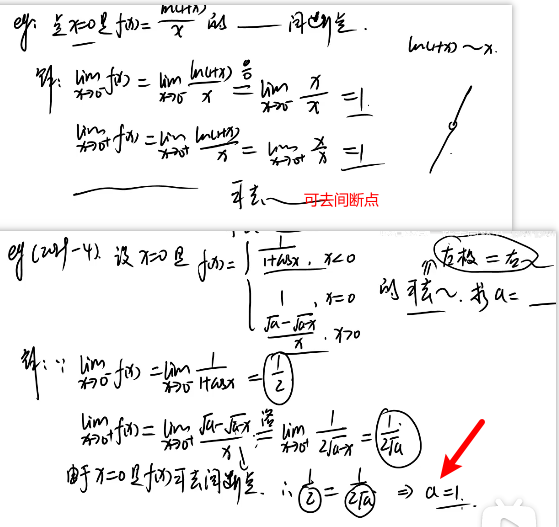 eg: 点x=0是f(x)=ln(1+x)/x 的 ____ 间断点.
ln(1+x)~x.
解: lim x→0⁻ f(x) = lim x→0⁻ ln(1+x)/x 0/0 = lim x→0⁻ x/x = 1.
lim x→0⁺ f(x) = lim x→0⁺ ln(1+x)/x = lim x→0⁺ x/x = 1
可去~
可去间断点
eg 设x=0是 f(x)= { 1/(1+cosx), x<0
1, x=0
(√a-√(a-x))/x, x>0
左极=右~
的可去~. 求a= __
解: ∵ lim x→0⁻ f(x) = lim x→0⁻ 1/(1+cosx) = 1/2
lim x→0⁺ f(x) = lim x→0⁺ (√a-√(a-x))/x 洛= lim x→0⁺ 1/(2√(a-x)) = 1/(2√a)
由于x=0是f(x)可去间断点. ∴ 1/2 = 1/(2√a) ⇒ a=1.